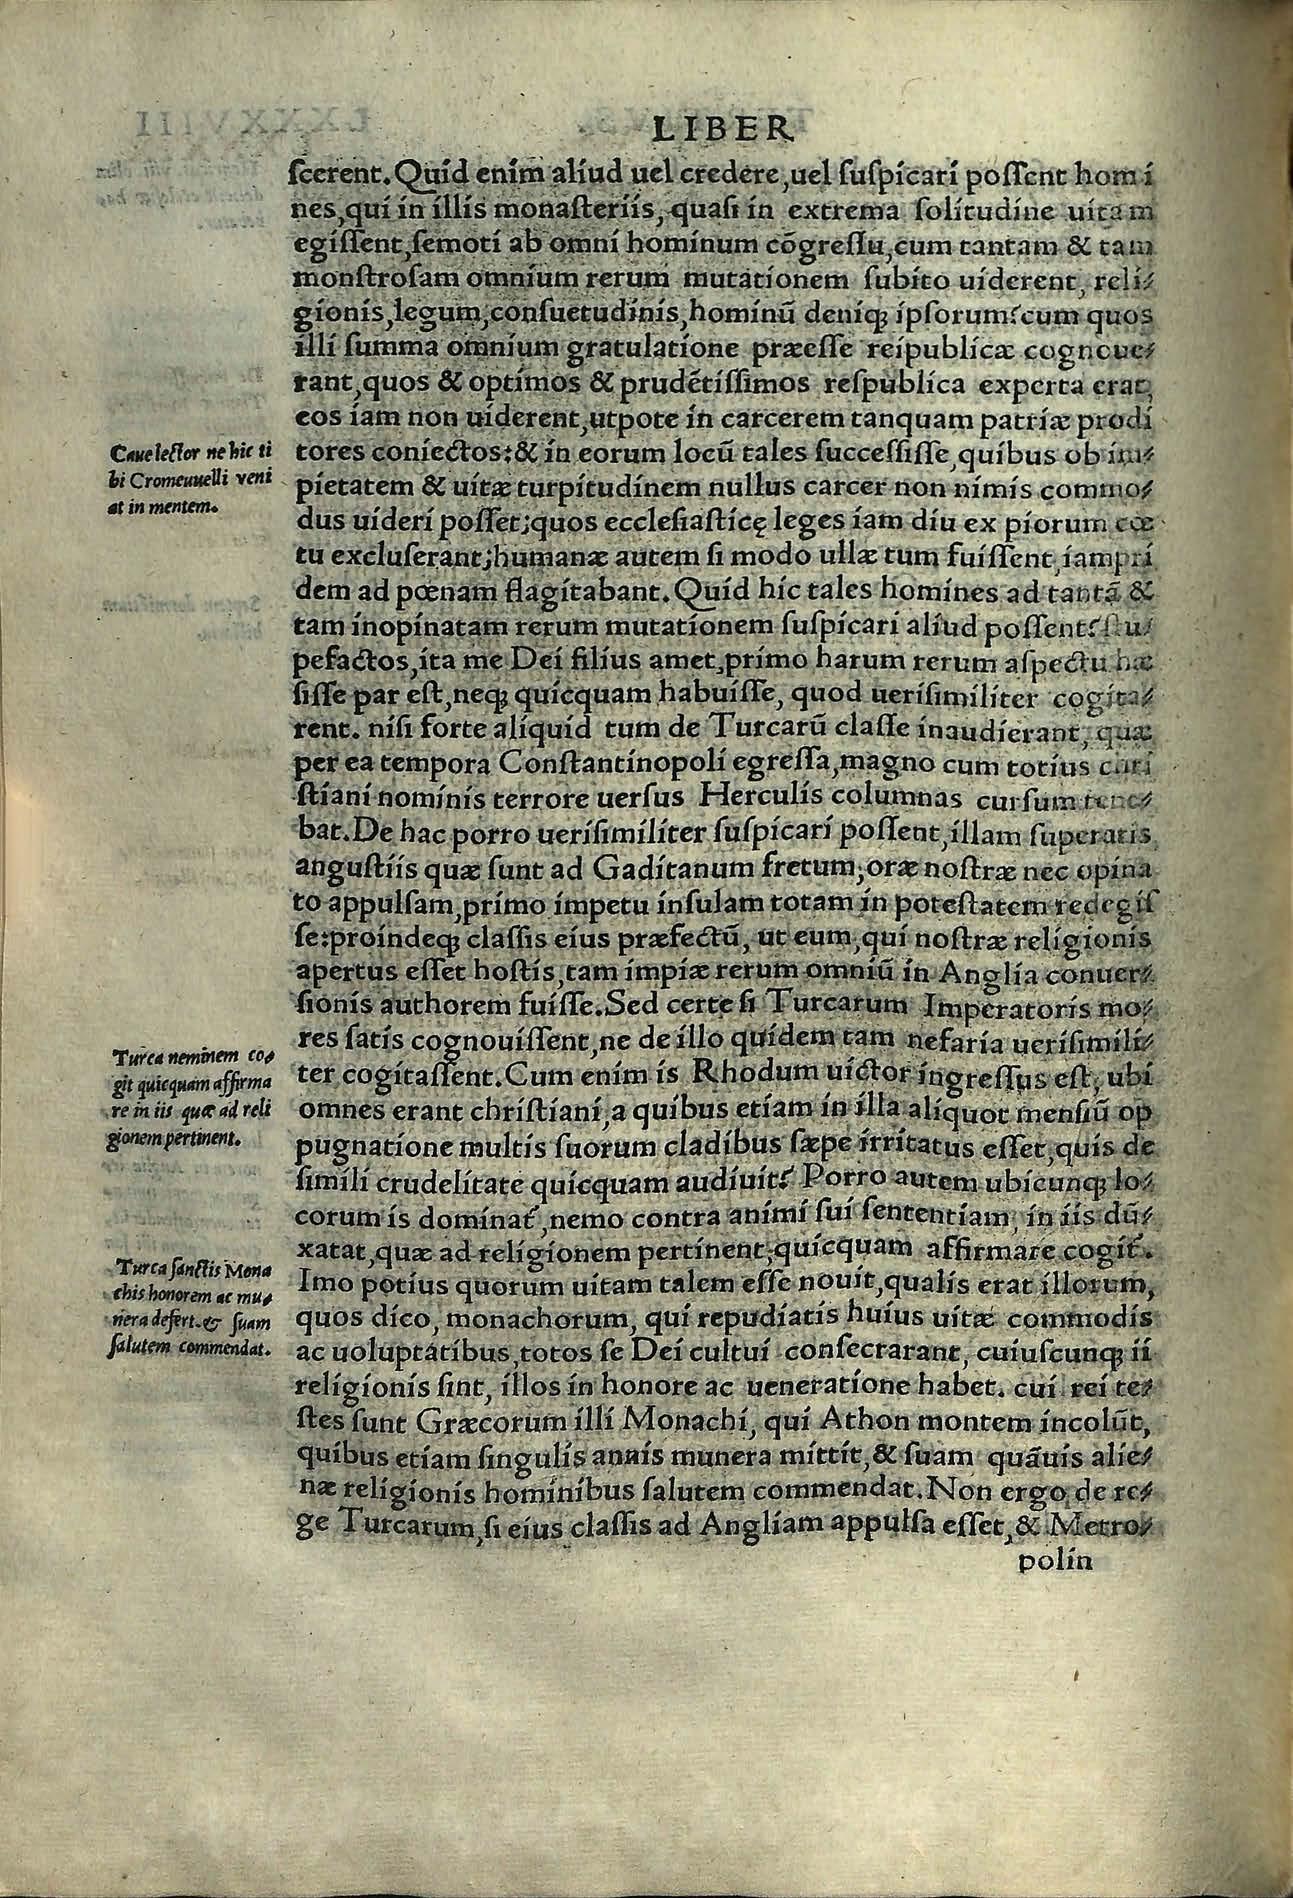 LIBER
scerent. Quid enim aliud uel credere, uel suspicari possent homi
nes, qui in illis monasteriis, quasi in extrema solitudine uitam
egissent, semoti ab omni hominum cõgressu, cum tantam & tam
monstrosam omnium rerum mutationem subito uiderent, reli-
gionis, legum, consuetudinis, hominũ deniqꝫ ipsorum? cum quos
illi summa omnium gratulatione præesse reipublicæ cognoue-
rant, quos & optimos & prudẽtissimos respublica experta erat,
eos iam non uiderent, utpote in carcerem tanquam patriæ prodi
tores coniectos: & in eorum locũ tales successisse, quibus ob im-
pietatem & uitæ turpitudinem nullus carcer non nimis commo-
dus uideri posset; quos ecclesiasticę leges iam diu ex piorum cœ
tu excluserant; humanæ autem si modo ullæ tum fuissent, iampri
dem ad pœnam flagitabant. Quid hic tales homines ad tantã &
tam inopinatam rerum mutationem suspicari aliud possent? stu-
pefactos, ita me Dei filius amet, primo harum rerum aspectu hæ
sisse par est, neqꝫ quicquam habuisse, quod uerisimiliter cogita-
rent. nisi forte aliquid tum de Turcarũ classe inaudierant, quæ
per ea tempora Constantinopoli egressa, magno cum totius chri
stiani nominis terrore uersus Herculis columnas cursum tene-
bat. De hac porro uerisimiliter suspicari possent, illam superatis
angustiis quæ sunt ad Gaditanum fretum, oræ nostræ nec opina
to appulsam, primo impetu insulam totam in potestatem redegis
se: proindeqꝫ classis eius præfectũ, ut eum, qui nostræ religionis
apertus esset hostis, tam impiæ rerum omniũ in Anglia conuer-
sionis authorem fuisse. Sed certe si Turcarum Imperatoris mo-
res satis cognouissent, ne de illo quidem tam nefaria uerisimili-
ter cogitassent. Cum enim is Rhodum uictor ingressus est, ubi
omnes erant christiani, a quibus etiam in illa aliquot mensiũ op
pugnatione multis suorum cladibus sæpe irritatus esset, quis de
simili crudelitate quicquam audiuit? Porro autem ubicunqꝫ lo-
corum is dominat᷑, nemo contra animi sui sententiam, in iis dũ-
xatat, quæ ad religionem pertinent, quicquam affirmare cogit᷑.
Imo potius quorum uitam talem esse nouit, qualis erat illorum,
quos dico, monachorum, qui repudiatis huius uitæ commodis
ac uoluptatibus, totos se Dei cultui consecrarant, cuiuscunqꝫ ii
religionis sint, illos in honore ac ueneratione habet. cui rei te-
stes sunt Græcorum illi Monachi, qui Athon montem incolũt,
quibus etiam singulis annis munera mittit, & suam quãuis alie-
næ religionis hominibus salutem commendat. Non ergo de re-
ge Turcarum, si eius classis ad Angliam appulsa esset, & Metro-
polin
Caue lector ne hic ti
bi Cromeuuelli veni
at in mentem.
Turca neminem co-
git quicquam affirma
re in iis quæ ad reli
gionem pertinent.
Turca sanctis Mona
chis honorem ac mu-
nera defert. & suam
salutem commendat.